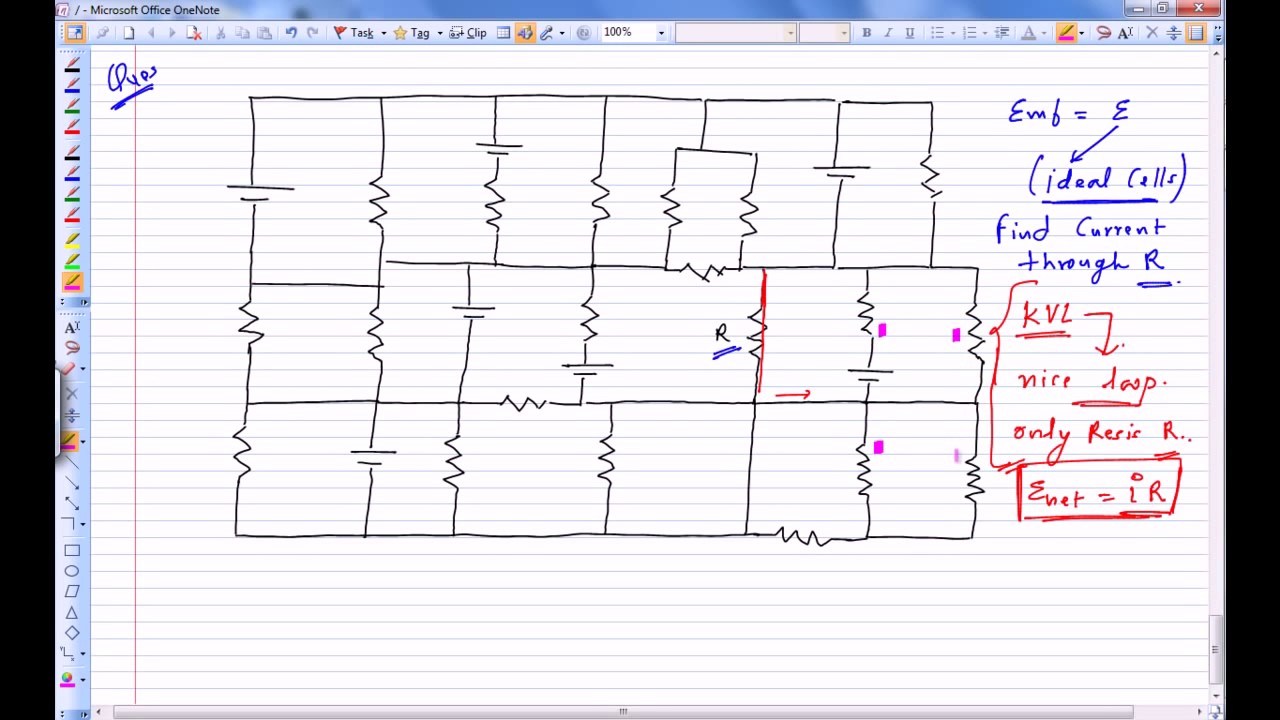 / - Microsoft Office OneNote
Task
Tag
Clip
100%
B I U
A
Ques
Emf = ε
(ideal Cells)
find Current
through R.
KVL
nice loop.
only Resis R..
ε net = i R
R